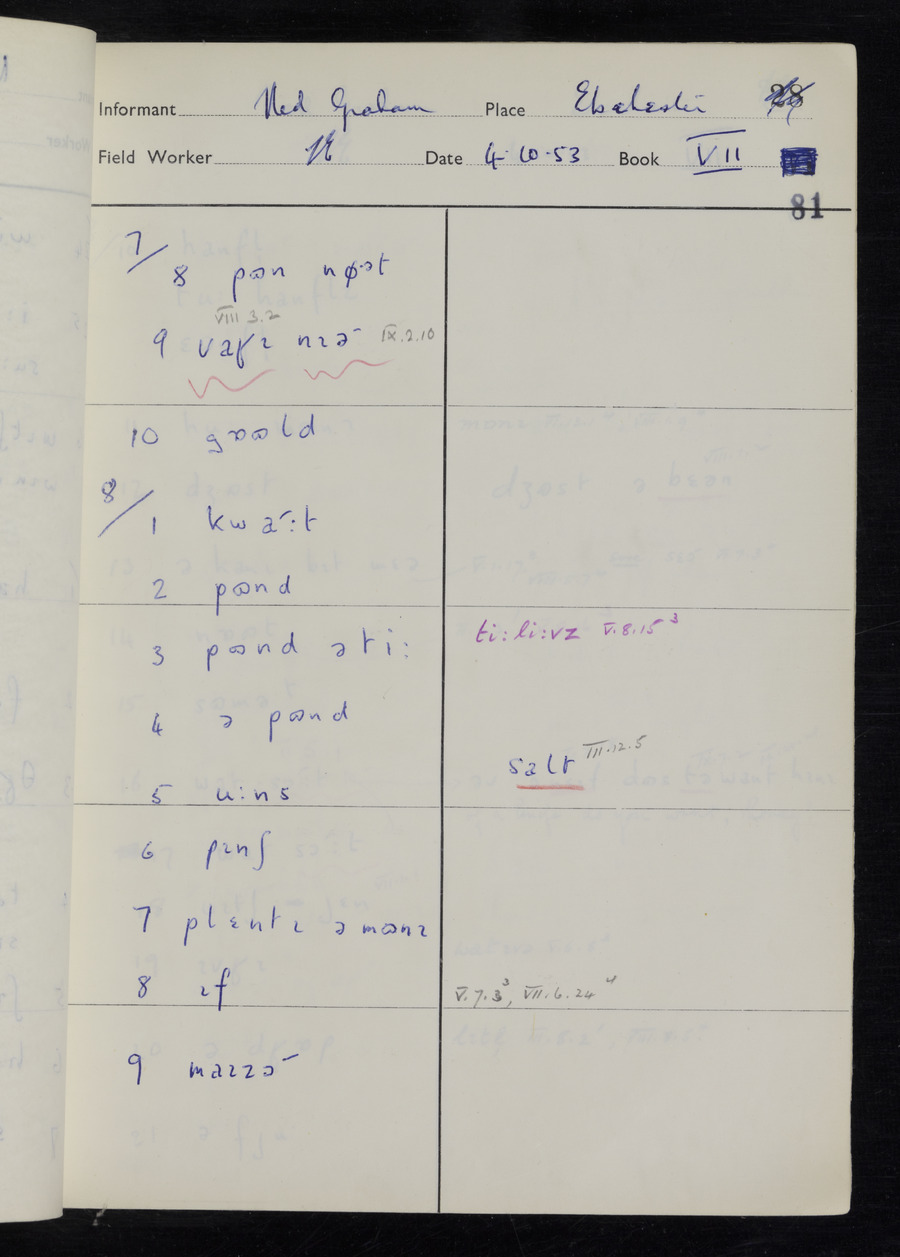 Informant Ned Graham Place Ebchester 28
Field Worker Date 4-10-53 Book VII
81
7/
8 pʊn nøət
VIII 3.2
9 vaʁɪ nɪə IX.2.10
10 gʊəld
8/
1 kwaː:t
2 pʊnd
3 pʊnd əti: ti:li:vz V.8.15³
4 ə pʊnd
salt III.12.5
5 u:ns
6 pɪnʃ
7 plɛntɪ ə mʊnɪ
8 ɪf V.7.3³, VII.6.24⁴
9